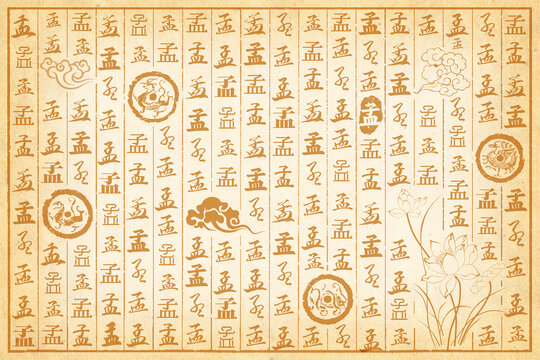 孟孟孟孟孟孟孟孟孟孟
孟孟孟孟孟孟孟孟孟
孟孟孟孟孟孟孟孟
孟孟孟孟孟孟孟
孟孟孟孟孟孟孟孟孟
孟孟孟孟孟孟孟孟孟孟孟孟
孟孟孟孟孟孟孟孟孟孟孟
孟孟孟孟孟孟孟孟孟孟
孟孟孟孟孟孟孟孟孟孟孟孟
孟孟孟孟孟孟孟孟孟孟孟
孟孟孟孟孟孟孟孟孟孟孟
孟孟孟孟孟孟孟孟孟孟孟
孟孟孟孟孟孟孟孟孟孟孟孟
孟孟孟孟孟孟孟孟孟孟
孟孟孟孟孟孟孟孟孟孟孟孟
孟孟孟孟孟孟孟孟孟孟孟
孟孟孟孟孟孟孟孟孟
孟孟孟孟孟孟孟孟孟孟孟孟